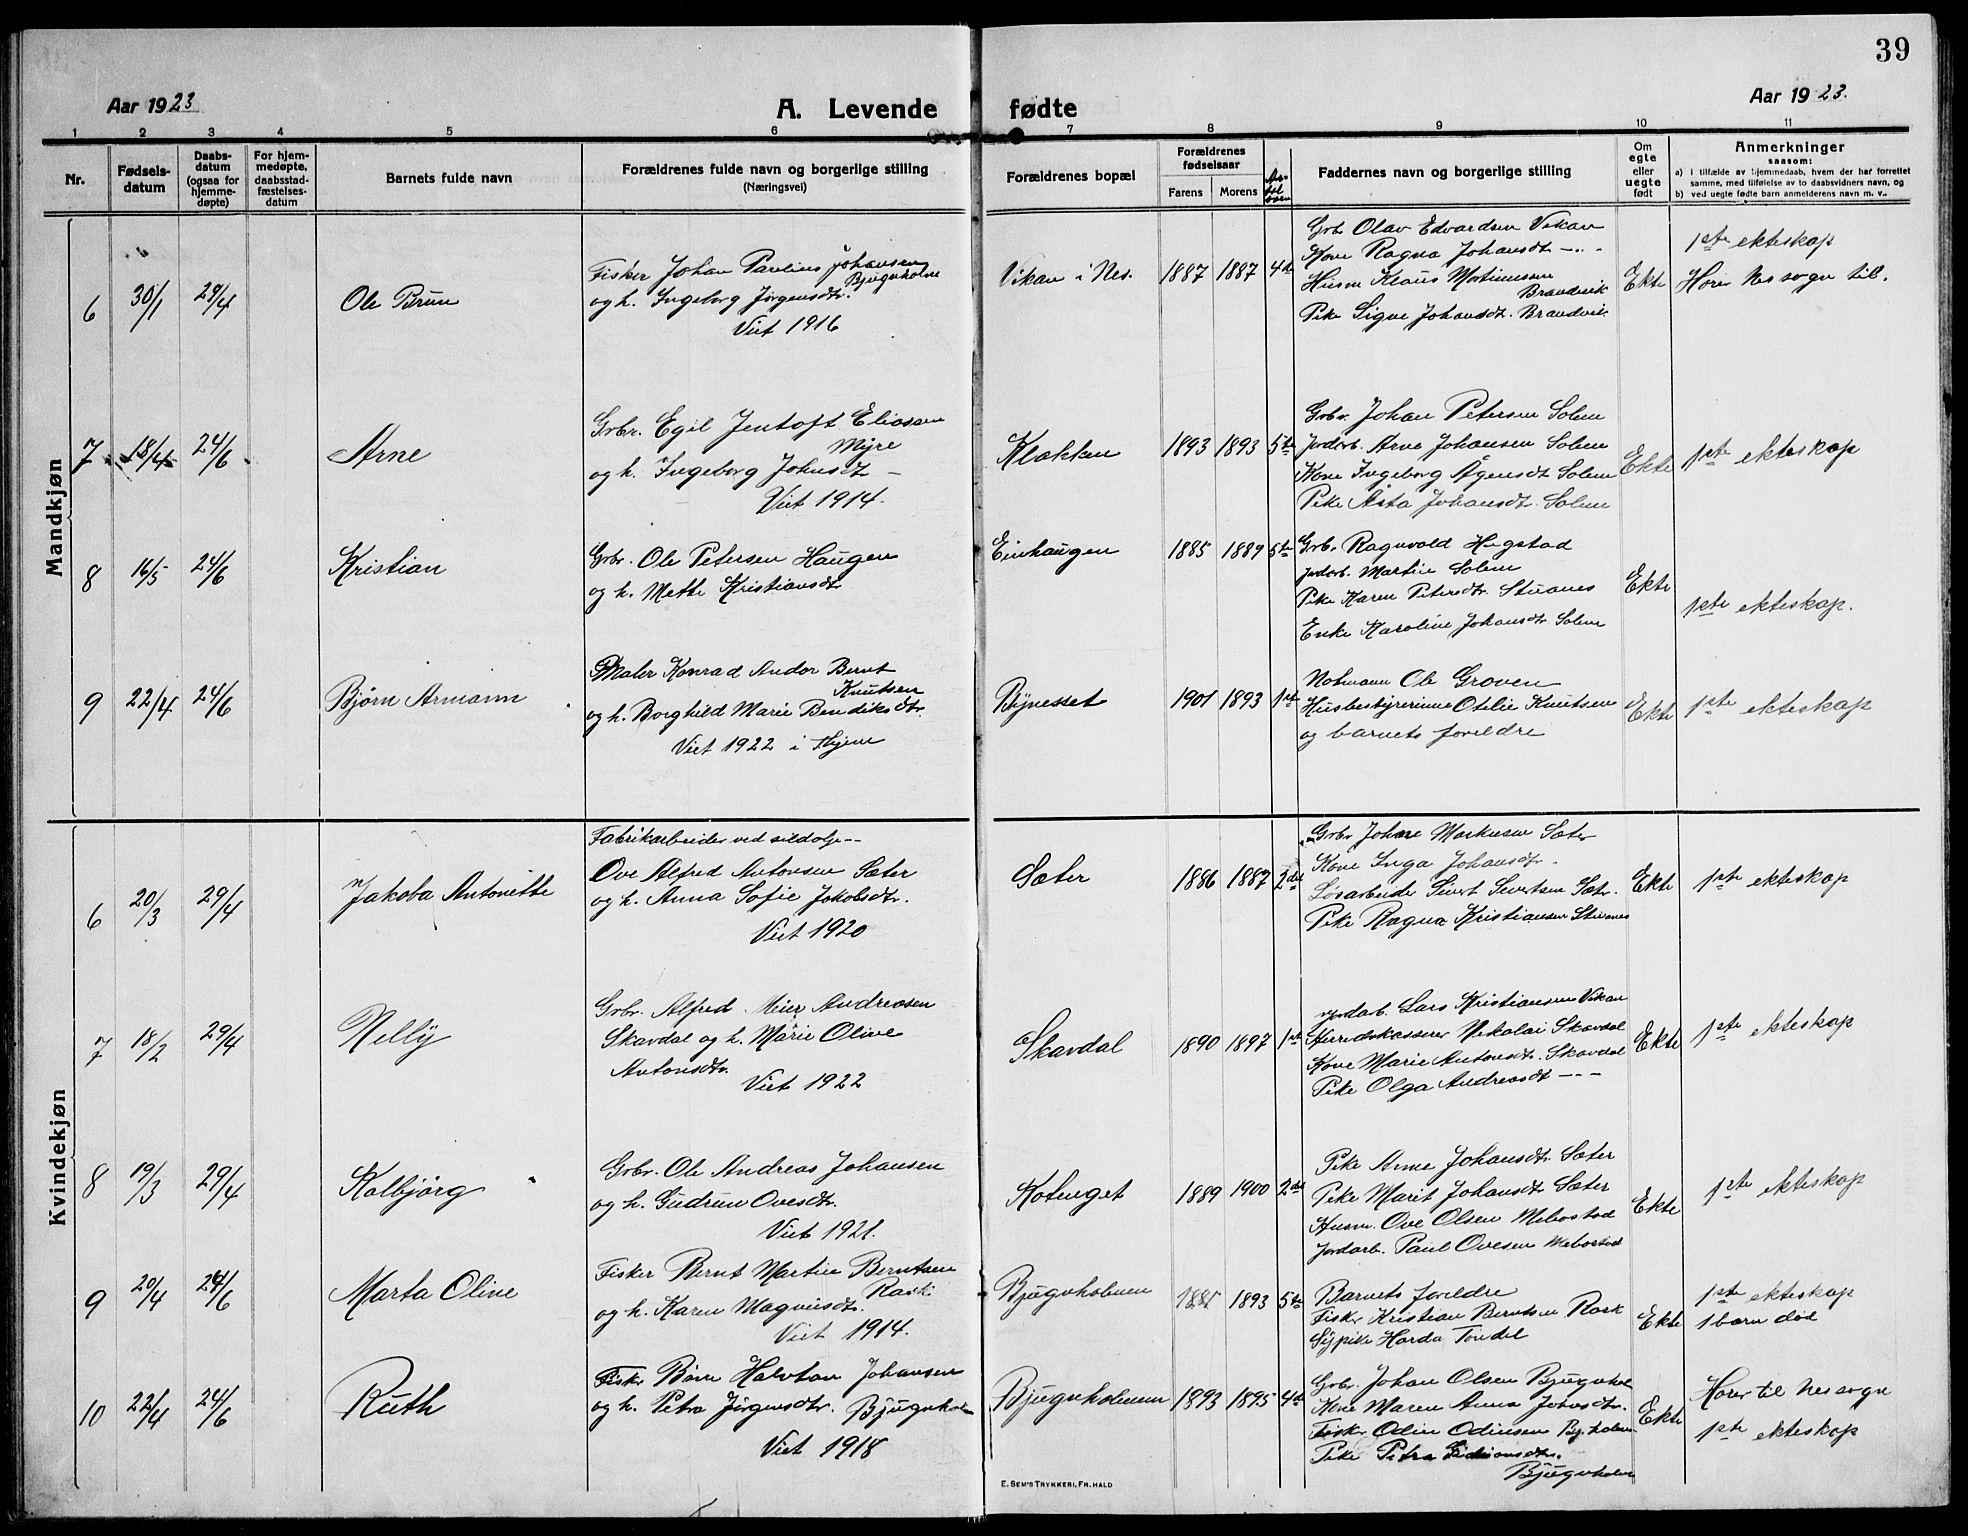 39
Aar 1923
A. Levende fødte
Aar 1923.
1 2 3 4 5 6 7 8 9 10 11
Nr.
Fødsels-
datum
Daabs-
datum
(ogsaa for
hjemme-
døpte)
For hjem-
medøpte,
daabsstad-
fæstelses-
datum
Barnets fulde navn
Forældrenes fulde navn og borgerlige stilling
(Næringsvei)
Forældrenes bopæl
Forældrenes
fødselsaar
Farens Morens
Faddernes navn og borgerlige stilling
Om
egte
eller
uegte
født
Anmerkninger
saasom:
a) i tilfælde av hjemmedaab, hvem der har forrettet
samme, med tilføielse av to daabsvidners navn, og
b) ved uegte fødte barn anmelderens navn m. v..
Mandkjøn
6 30/1 29/4 Ole Brun
Fisker Johan Paulius Johansen
Bjugnholm
og h. Ingeborg Jørgensdtr.
Viet 1916
Vikan i Nes. 1887 1887 4de
Grbr. Olav Edvardsen Vikan
Kone Ragna Johansdtr -"-
Husm Klaus Mortensen
Brandvik
Pike Signe Johansdtr. Brandvik
Ekte
1ste ekteskap
Hører Nes sogn til.
7 18/4 24/6 Arne
Grbr. Egil Jentoft Eliassen
Myre
og h. Ingeborg Johnsdtr -
Viet 1914.
Klakken 1893 1893 5te
Grbr. Johan Petersen Solem
Jordarb. Arne Johansen Solem
Kone Ingeborg Ågensdtr Solem
Pike Asta Johansdtr. Solem
Ekte 1ste ekteskap
8 16/5 24/6 Kristian
Grbr. Ole Petersen Haugen
og h. Mette Kristiansdtr
Einhaugen 1885 1889 5te
Grbr. Ragnvald Hegstad
Jordarb. Martin Solem
Pike Karen Petersdtr. Stuanes
Enke Karoline Johansdtr Solem
Ekte 1ste ekteskap.
9 22/4 24/6 Bjørn Armann
Maler Konrad Andor Bernt
Knutsen
og h. Borghild Marie Bendiksdtr.
Viet 1922 i Hjem
Bynesset 1901 1893 1ste
Notmann Ole Groven
Husbestyrerinne Otelie Knutsen
og barnets foreldre
Ekte 1ste ekteskap
Kvindekjøn
6 20/3 29/4 Jakoba Antonette
Fabrikarbeider ved sildolje--
Ove Alfred Antonsen Sæter
og h. Anna Sofie Jakobsdtr.
Viet 1920
Sæter 1886 1887 2det
Grbr Johan Markusen Sæter
Kone Inga Johansdtr.
Løsarbeider Sivert Sivertsen Sætr.
Pike Ragna Kristiansen Stuanes
Ekte 1ste ekteskap
7 18/2 29/4 Nelly
Grbr. Alfred Meier Andreasen
Skavdal og h. Marie Olive
Antonsdtr.
Viet 1922
Skavdal 1890 1897 1ste
Jordarb. Lars Kristiansen Vikan
Herredskasserer Nikolai Skavdal
Kone Marie Antonsdtr. Skavdal
Pike Olga Andreasdtr -"-
Ekte 1ste ekteskap
8 19/3 29/4 Kolbjørg
Grbr. Ole Andreas Johansen
og h. Gudrun Ovesdtr.
Viet 1921.
Kotenget 1889 1900 2det
Pike Anne Johansdtr. Sæter
Pike Marit Johansdtr Sæter
Husm. Ove Olsen Mebostad
Jordarb. Paul Ovesen Mebostad
Ekte 1ste ekteskap
9 20/4 24/6 Marta Oline
Fisker Bernt Martin Berntsen
Rask
og h. Karen Magnusdtr.
Viet 1914.
Bjugnholmen 1893 5te
Barnets foreldre
Fisker Kristian Berntsen Rask
Sypike Harda Tondel
Ekte
1ste ekteskap
1 barn død
10 22/4 24/6 Ruth
Fisker Børre Halvtan Johansen
og h. Petra Jörgensdtr. Bjugnholm
Viet 1918
Bjugnholmen 1893 1895 4de
Grbr. Johan Olsen Bjugnhol
Kone Maren Anna Johnsdtr.
Fisker Odin Odinsen Bj.holm
Pike Petra
Bjugnholm
Ekte
Hører til Nes sogn
1ste ekteskap
E. SEM'S TRYKKERI, FR.HALD